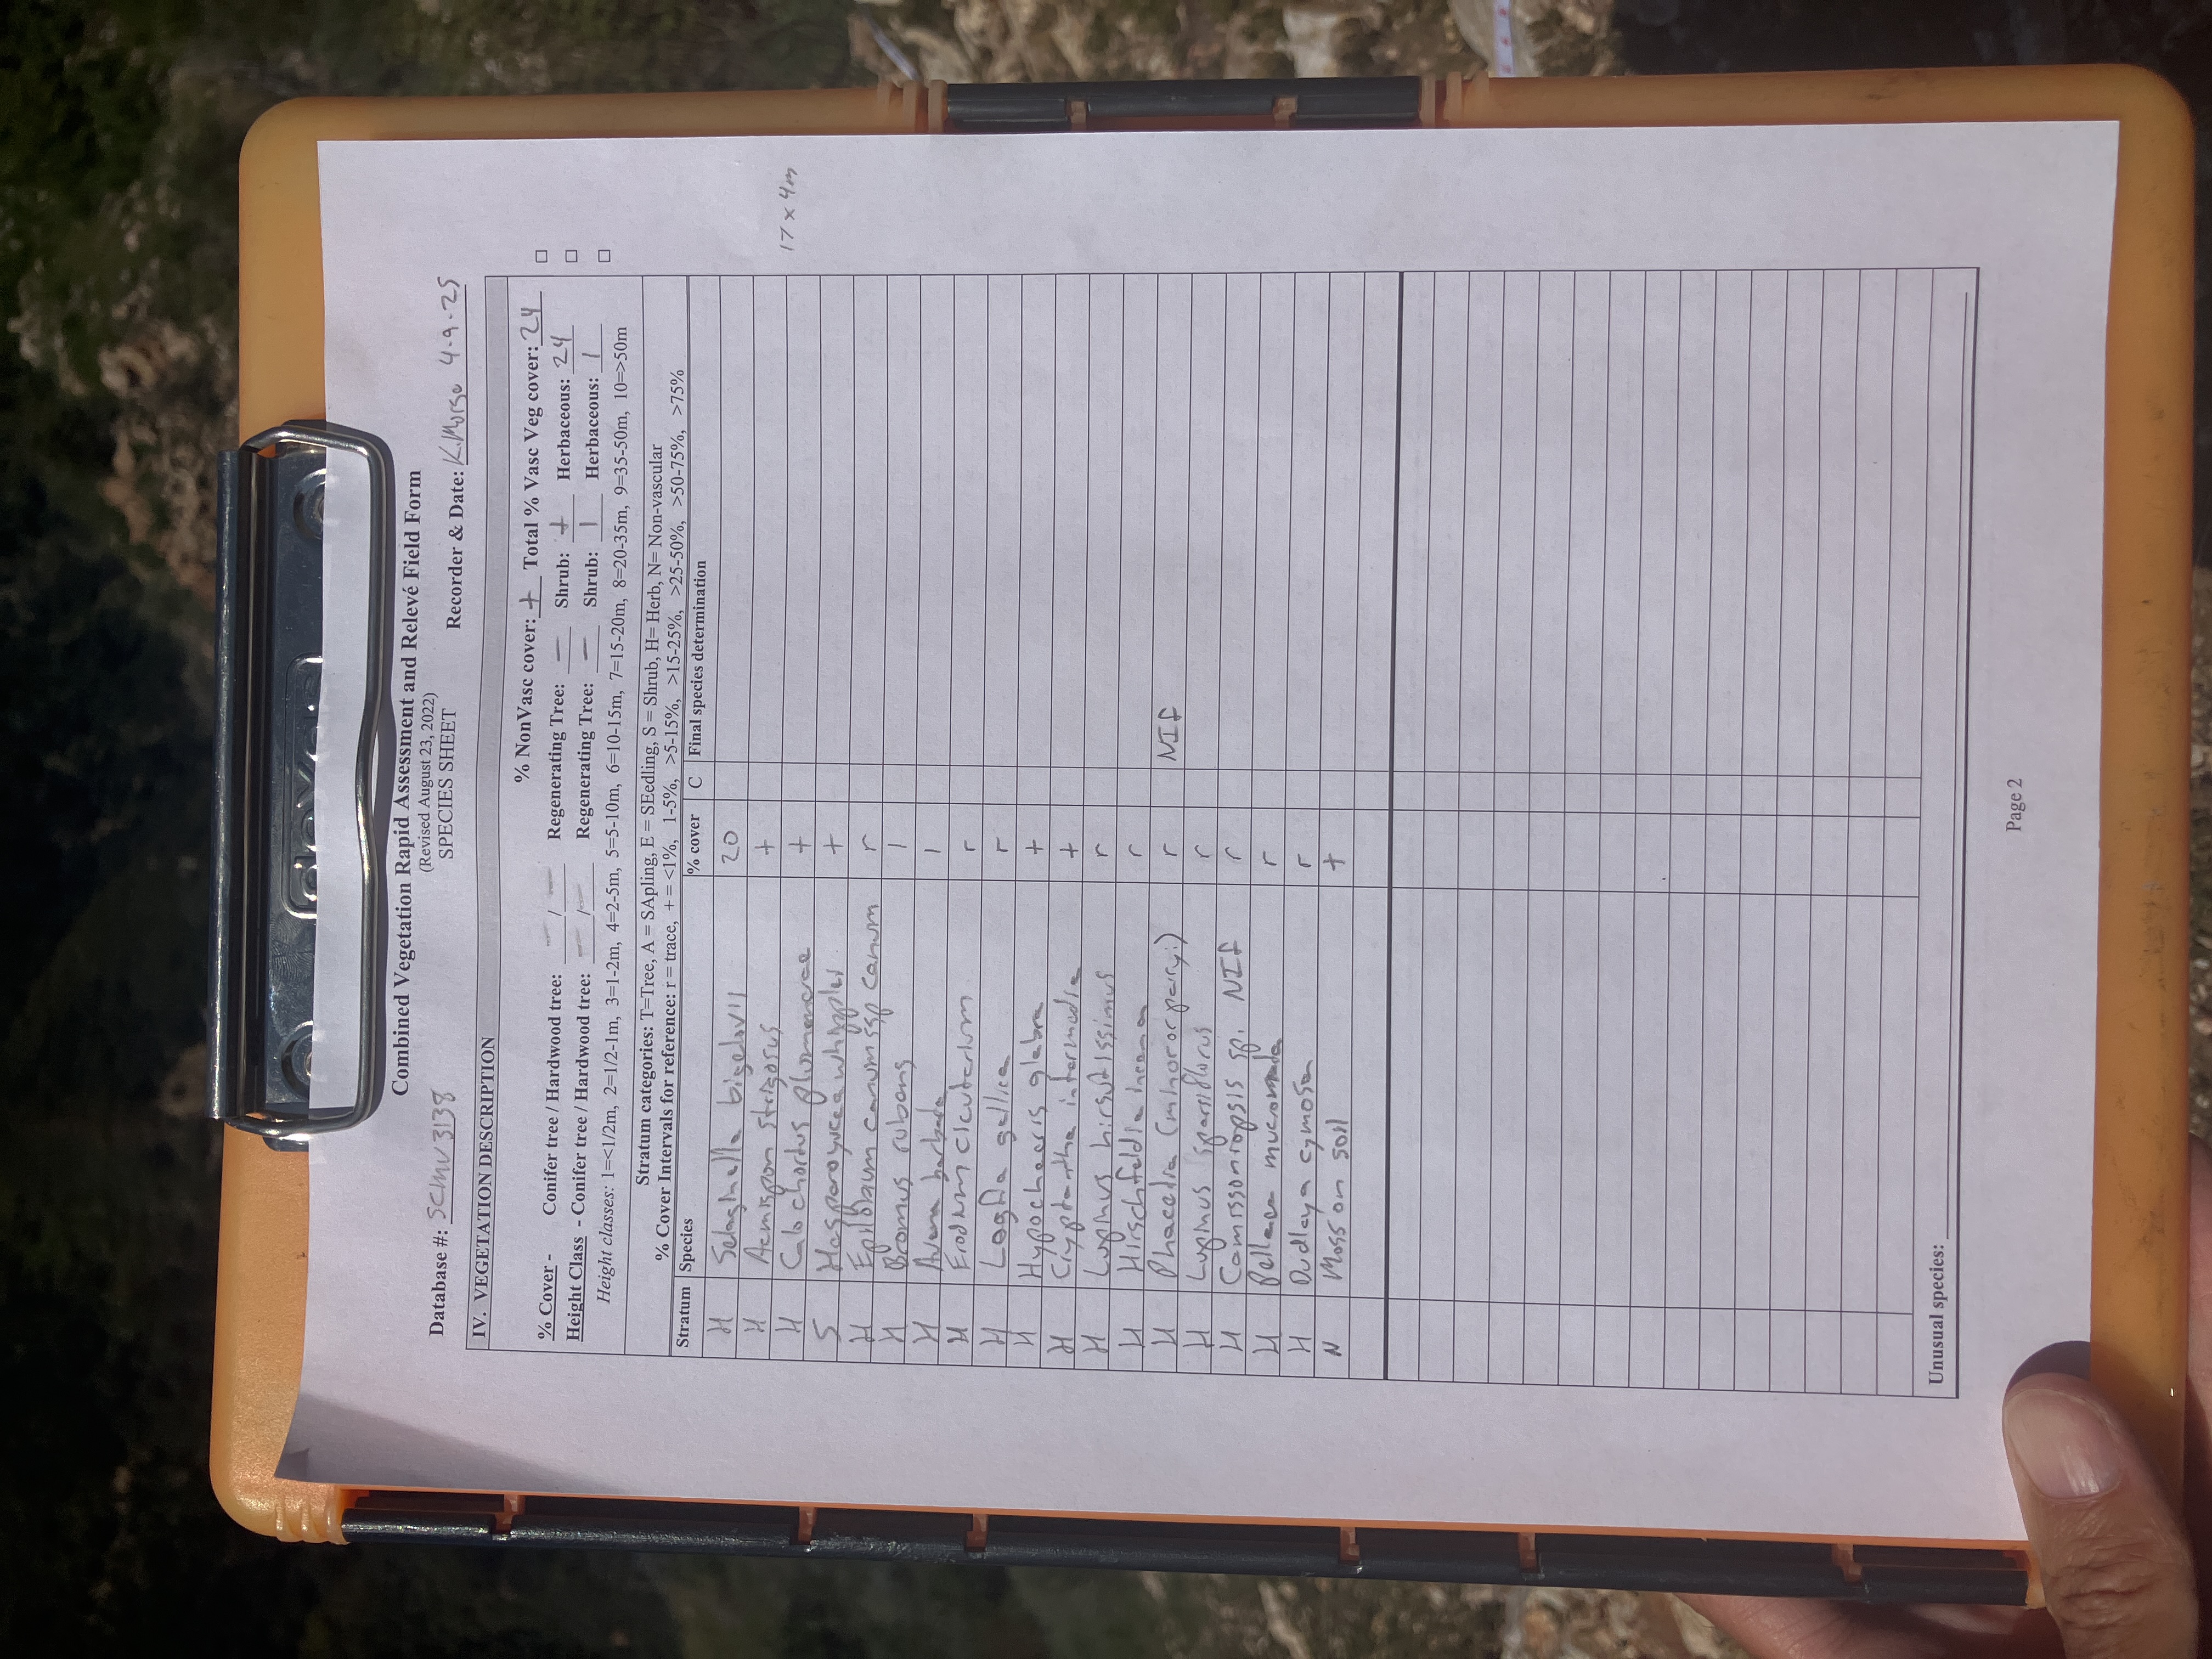 Combined Vegetation Rapid Assessment and Relevé Field Form
(Revised August 23, 2022)
SPECIES SHEET
Database #: SCMV3138 Recorder & Date: K.Morse 4.9.25
IV. VEGETATION DESCRIPTION
% NonVasc cover: + Total % Vasc Veg cover: 24
% Cover - Conifer tree / Hardwood tree: — / — Regenerating Tree: — Shrub: + Herbaceous: 24
Height Class - Conifer tree / Hardwood tree: — / — Regenerating Tree: — Shrub: 1 Herbaceous: 1
Height classes: 1=<1/2m, 2=1/2-1m, 3=1-2m, 4=2-5m, 5=5-10m, 6=10-15m, 7=15-20m, 8=20-35m, 9=35-50m, 10=>50m
Stratum categories: T=Tree, A = SApling, E = SEedling, S = Shrub, H= Herb, N= Non-vascular
% Cover Intervals for reference: r = trace, + = <1%, 1-5%, >5-15%, >15-25%, >25-50%, >50-75%, >75%
Stratum Species % cover C Final species determination
H Selaginella bigelovii 20
H Acmispon strigosus +
H Calochortus +
17 x 4m
S Hesperoyucca whipplei +
H Epilobium canum ssp canum r
H Bromus rubens 1
H Avena barbata 1
H Erodium cicutarium r
H Logfia gallica r
H Hypochaeris glabra +
H Cryptantha intermedia +
H Lupinus hirsutissimus r
H Hirschfeldia incana r
H Phacelia (minor or parryi) r NIF
H Lupinus sparsiflorus r
H Camissoniopsis sp. NIF r
H Pellaea mucronata r
H Dudleya cymosa r
N Moss on soil +
Unusual species:
Page 2